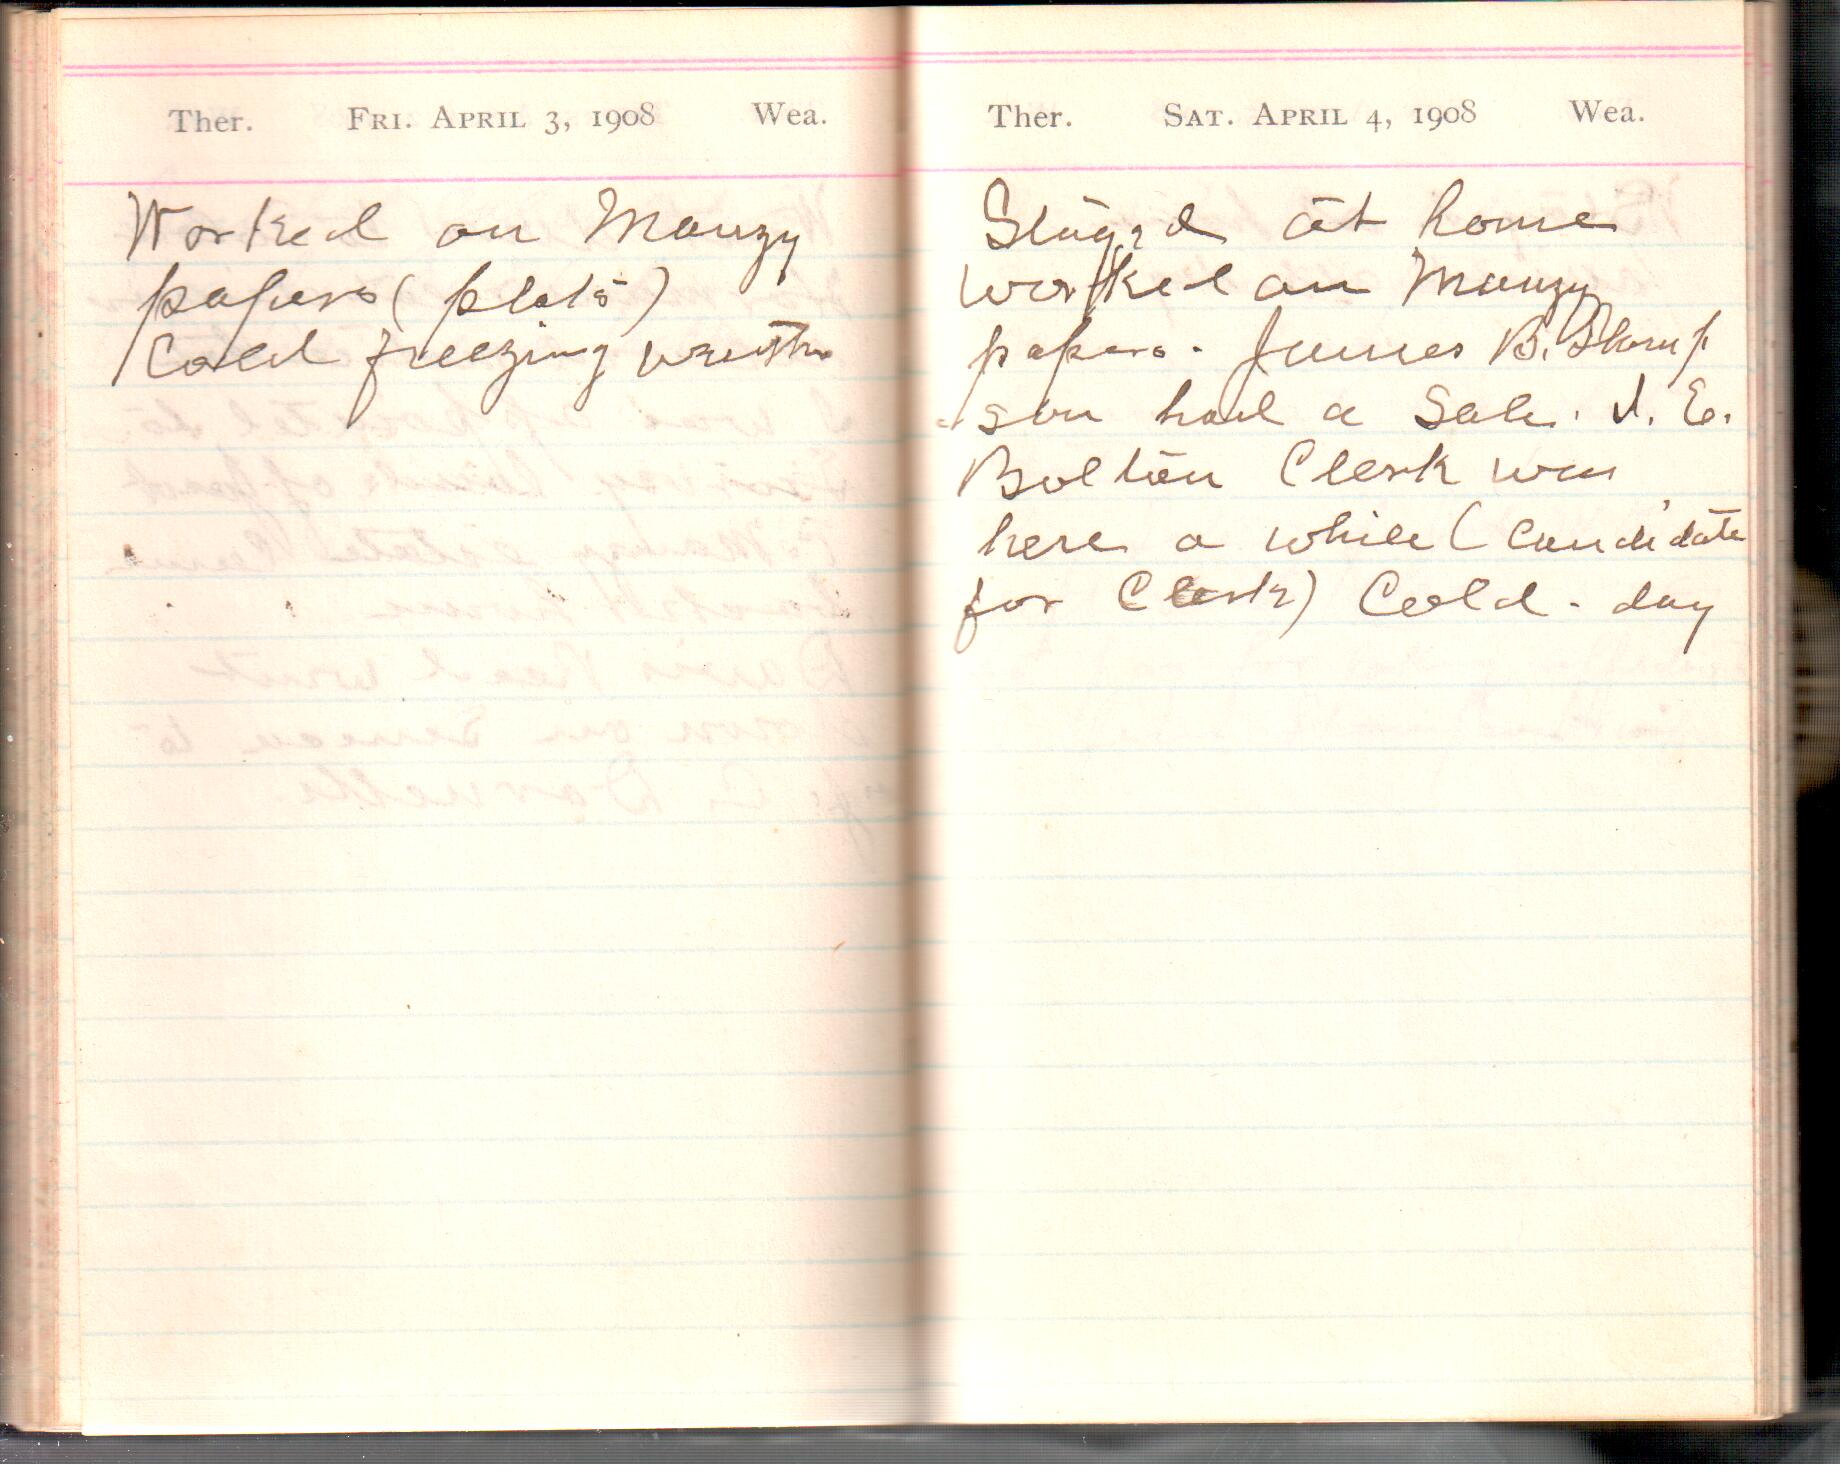 Ther. FRI. APRIL 3, 1908 Wea.
Worked on Mauzy
papers (plats)
Cold freezing
Ther. SAT. APRIL 4, 1908 Wea.
Stayed at home
worked on Mauzy
papers. James B.
son had a Sale. J. E.
Bolton Clerk was
here a while (Candidate
for Clerk) Cold. day